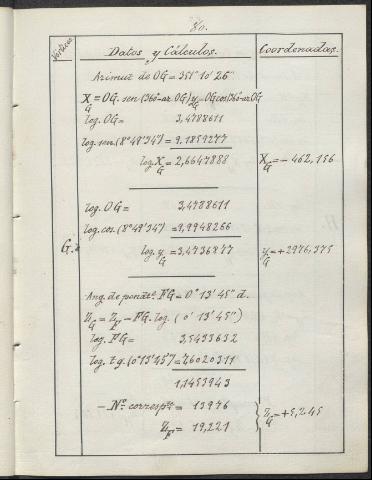 80.
Vértices
Datos y Cálculos.
Coordenadas.
Azimut de OG = 351° 10' 26"
X_G = OG. sen (360°-az OG) y_G = OG cos (360°-az OG
log. OG = 3,4788611
log. sen. (8° 49' 34") = 9.1859277
log. X_G = 2,6647888
X_G = - 462,156
log. OG = 3,4788611
log. cos. (8° 49' 34") = 9,9948266
G.
log. y_G = 3,4736877
y_G = + 2976,375
Ang. de pendte. FG = 0° 13' 45" d.
Z_G = Z_F - FG. log. ( 0° 13' 45")
log. FG = 3,5433632
log. t.g. (0° 13' 45") = 7,6020311
1,1453943
- No. correspte. = 13976
Z_F = 19,221
Z_G = + 5,245